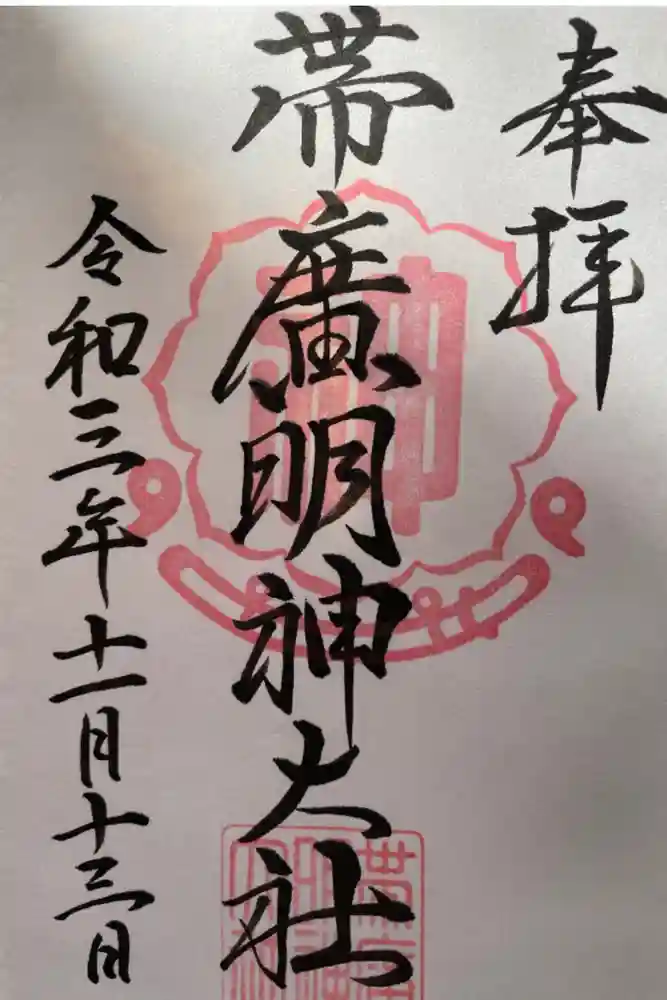 奉拝
帯廣明神大社
令和三年十一月十三日